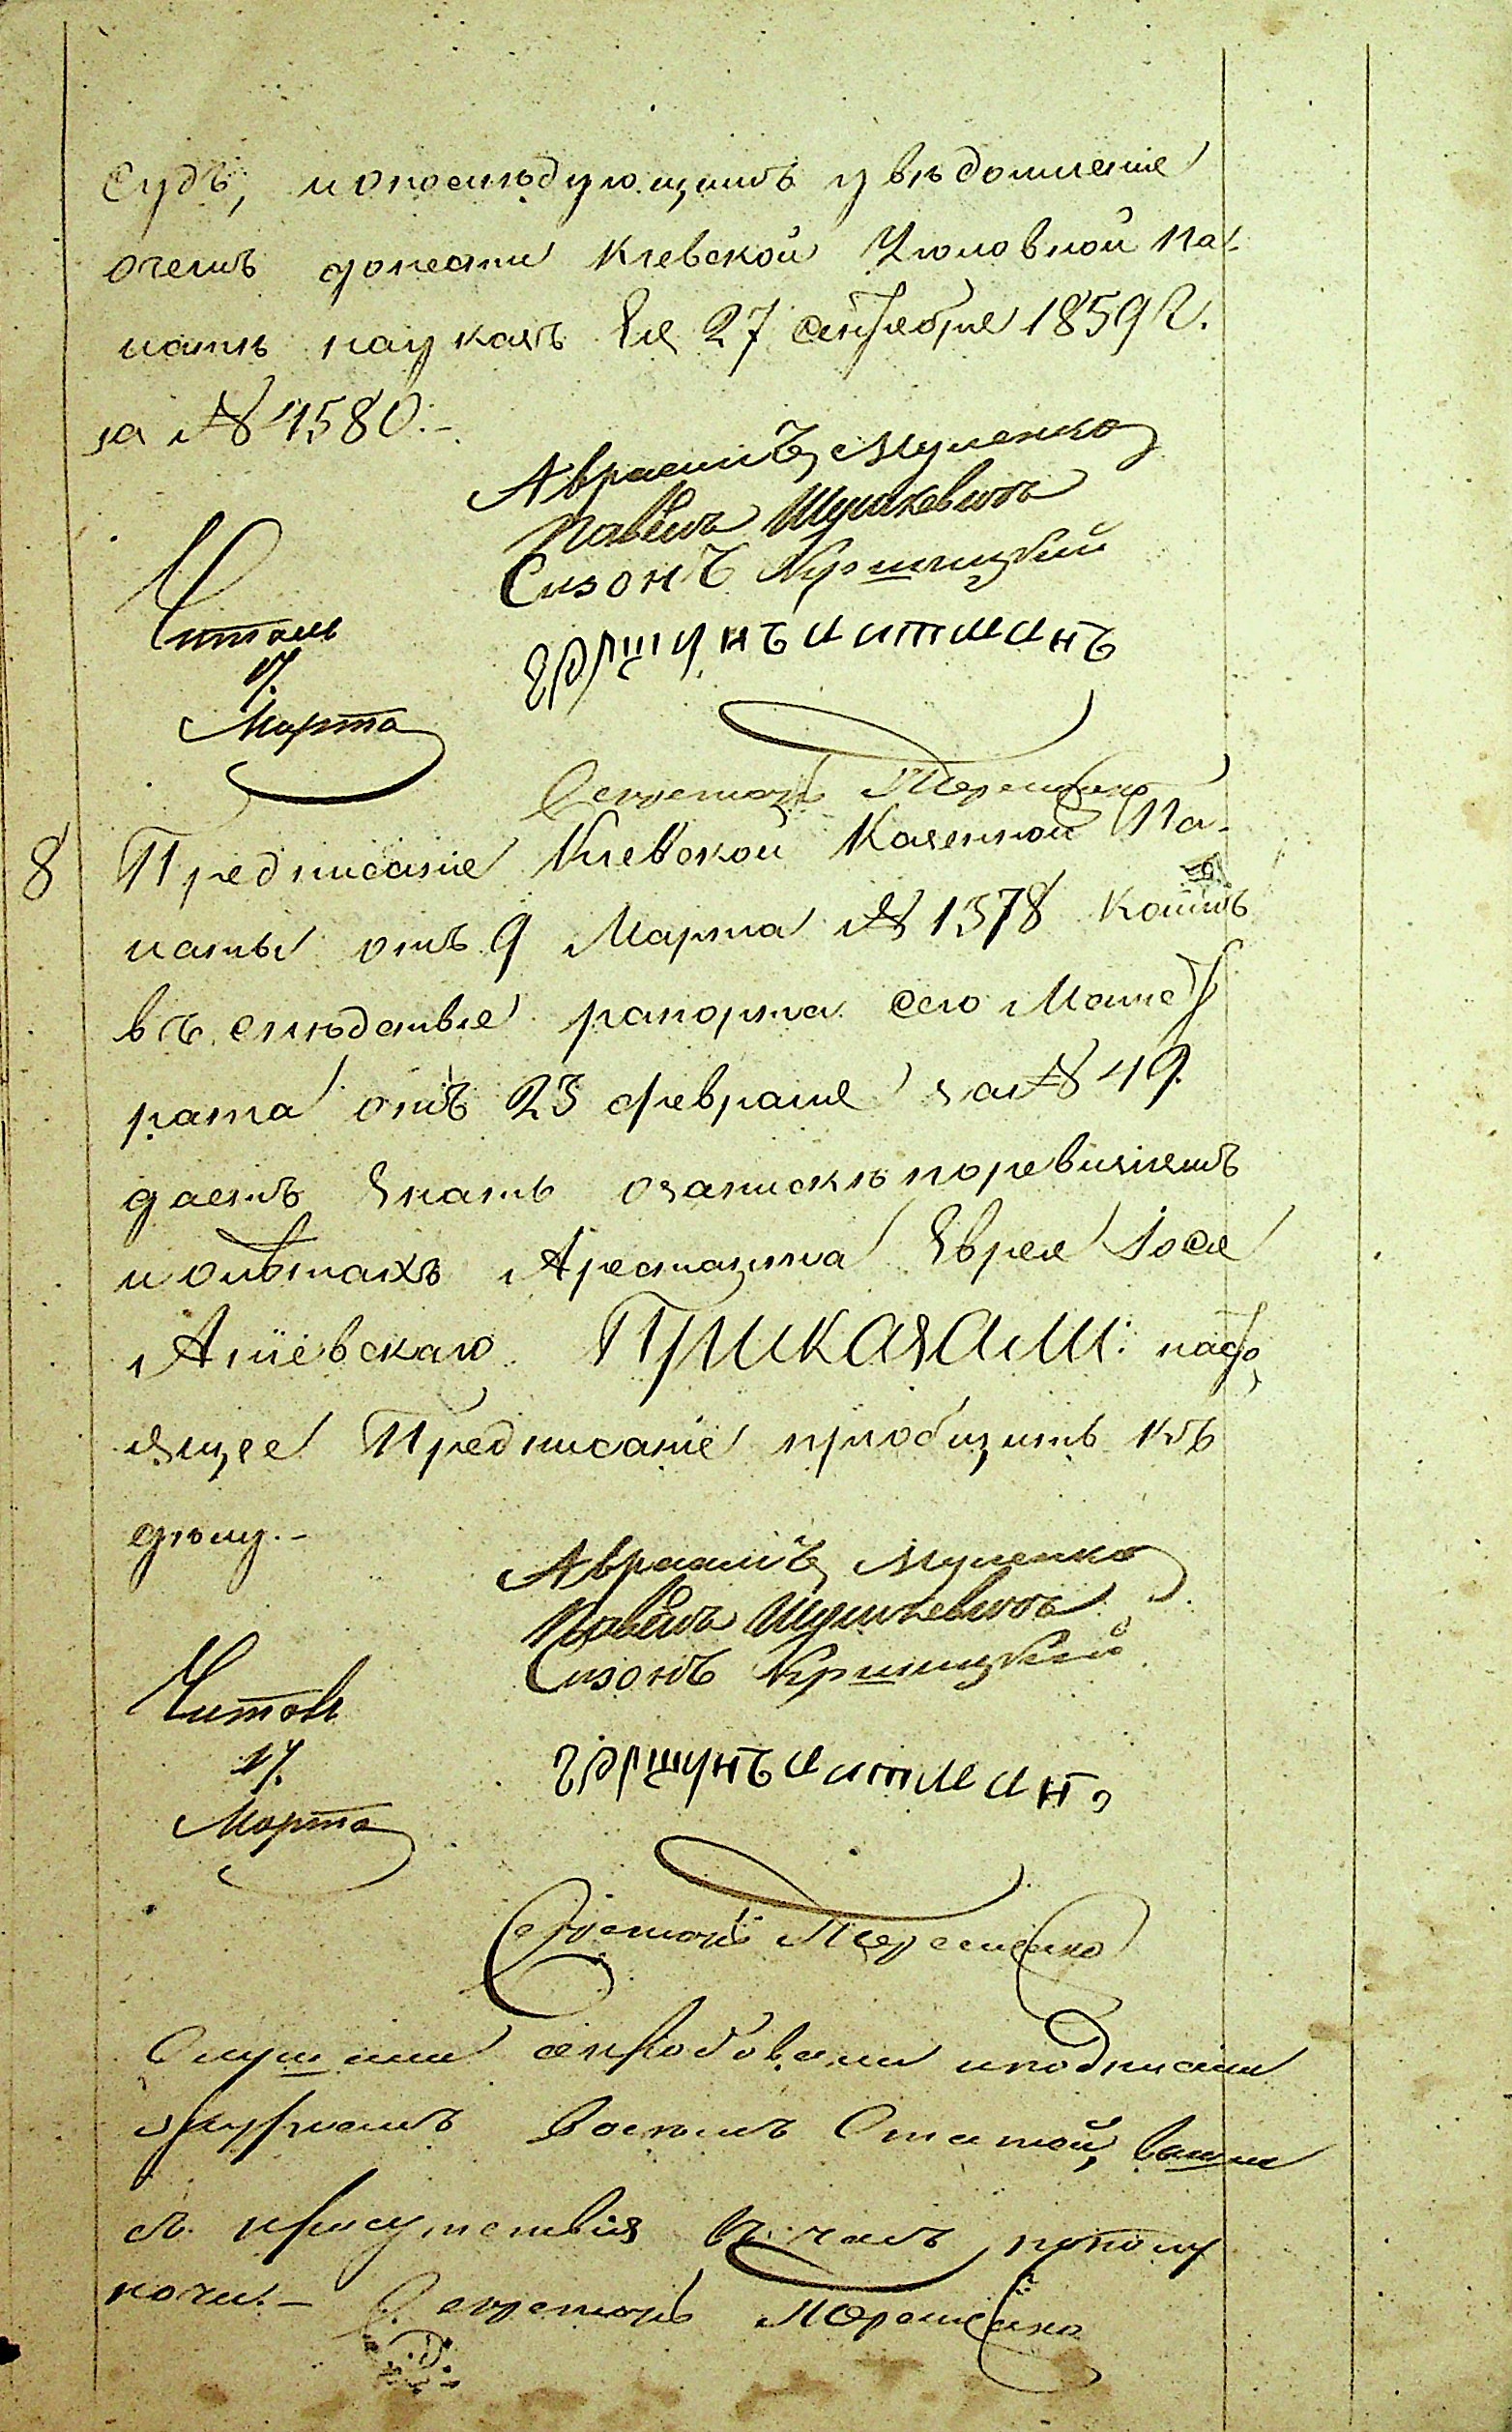 Судъ, иопослѣдующимъ увѣдомленіе
очемъ донести Кіевской Уголовной Па-
латѣ науказъ Ея 27 сентября 1859 г.
за № 4580.-
Авраамъ Муленко
Павелъ Шулькевичь
Сизонъ Криницкій
Гершунъ Цитминъ
Читалъ
17.
Марта
Секретарь Терещенко
8 Предписаніе Кіевской Казенной Па-
латы отъ 9 Марта № 1378 коимъ
въ слѣдствіе рапорта сего Магист
рата отъ 23 февраля за № 49.
даетъ знать озапискѣ поревизіямъ
и олѣтахъ Арестанта Еврея Іося
Агіевскаго. Приказали: насто
ящее Предписаніе пріобщить къ
дѣлу.-
Авраамъ Муленко
Павелъ Шулькевичь
Сизонъ Криницкій
Читалъ
17.
Марта
Гершунъ Цитминъ
Секретарь Терещенко
Слушали иподписали
журналъ восемь Статей, вышли
съ присутствія въ часъ пополу
ночи.- Секретарь Терещенко